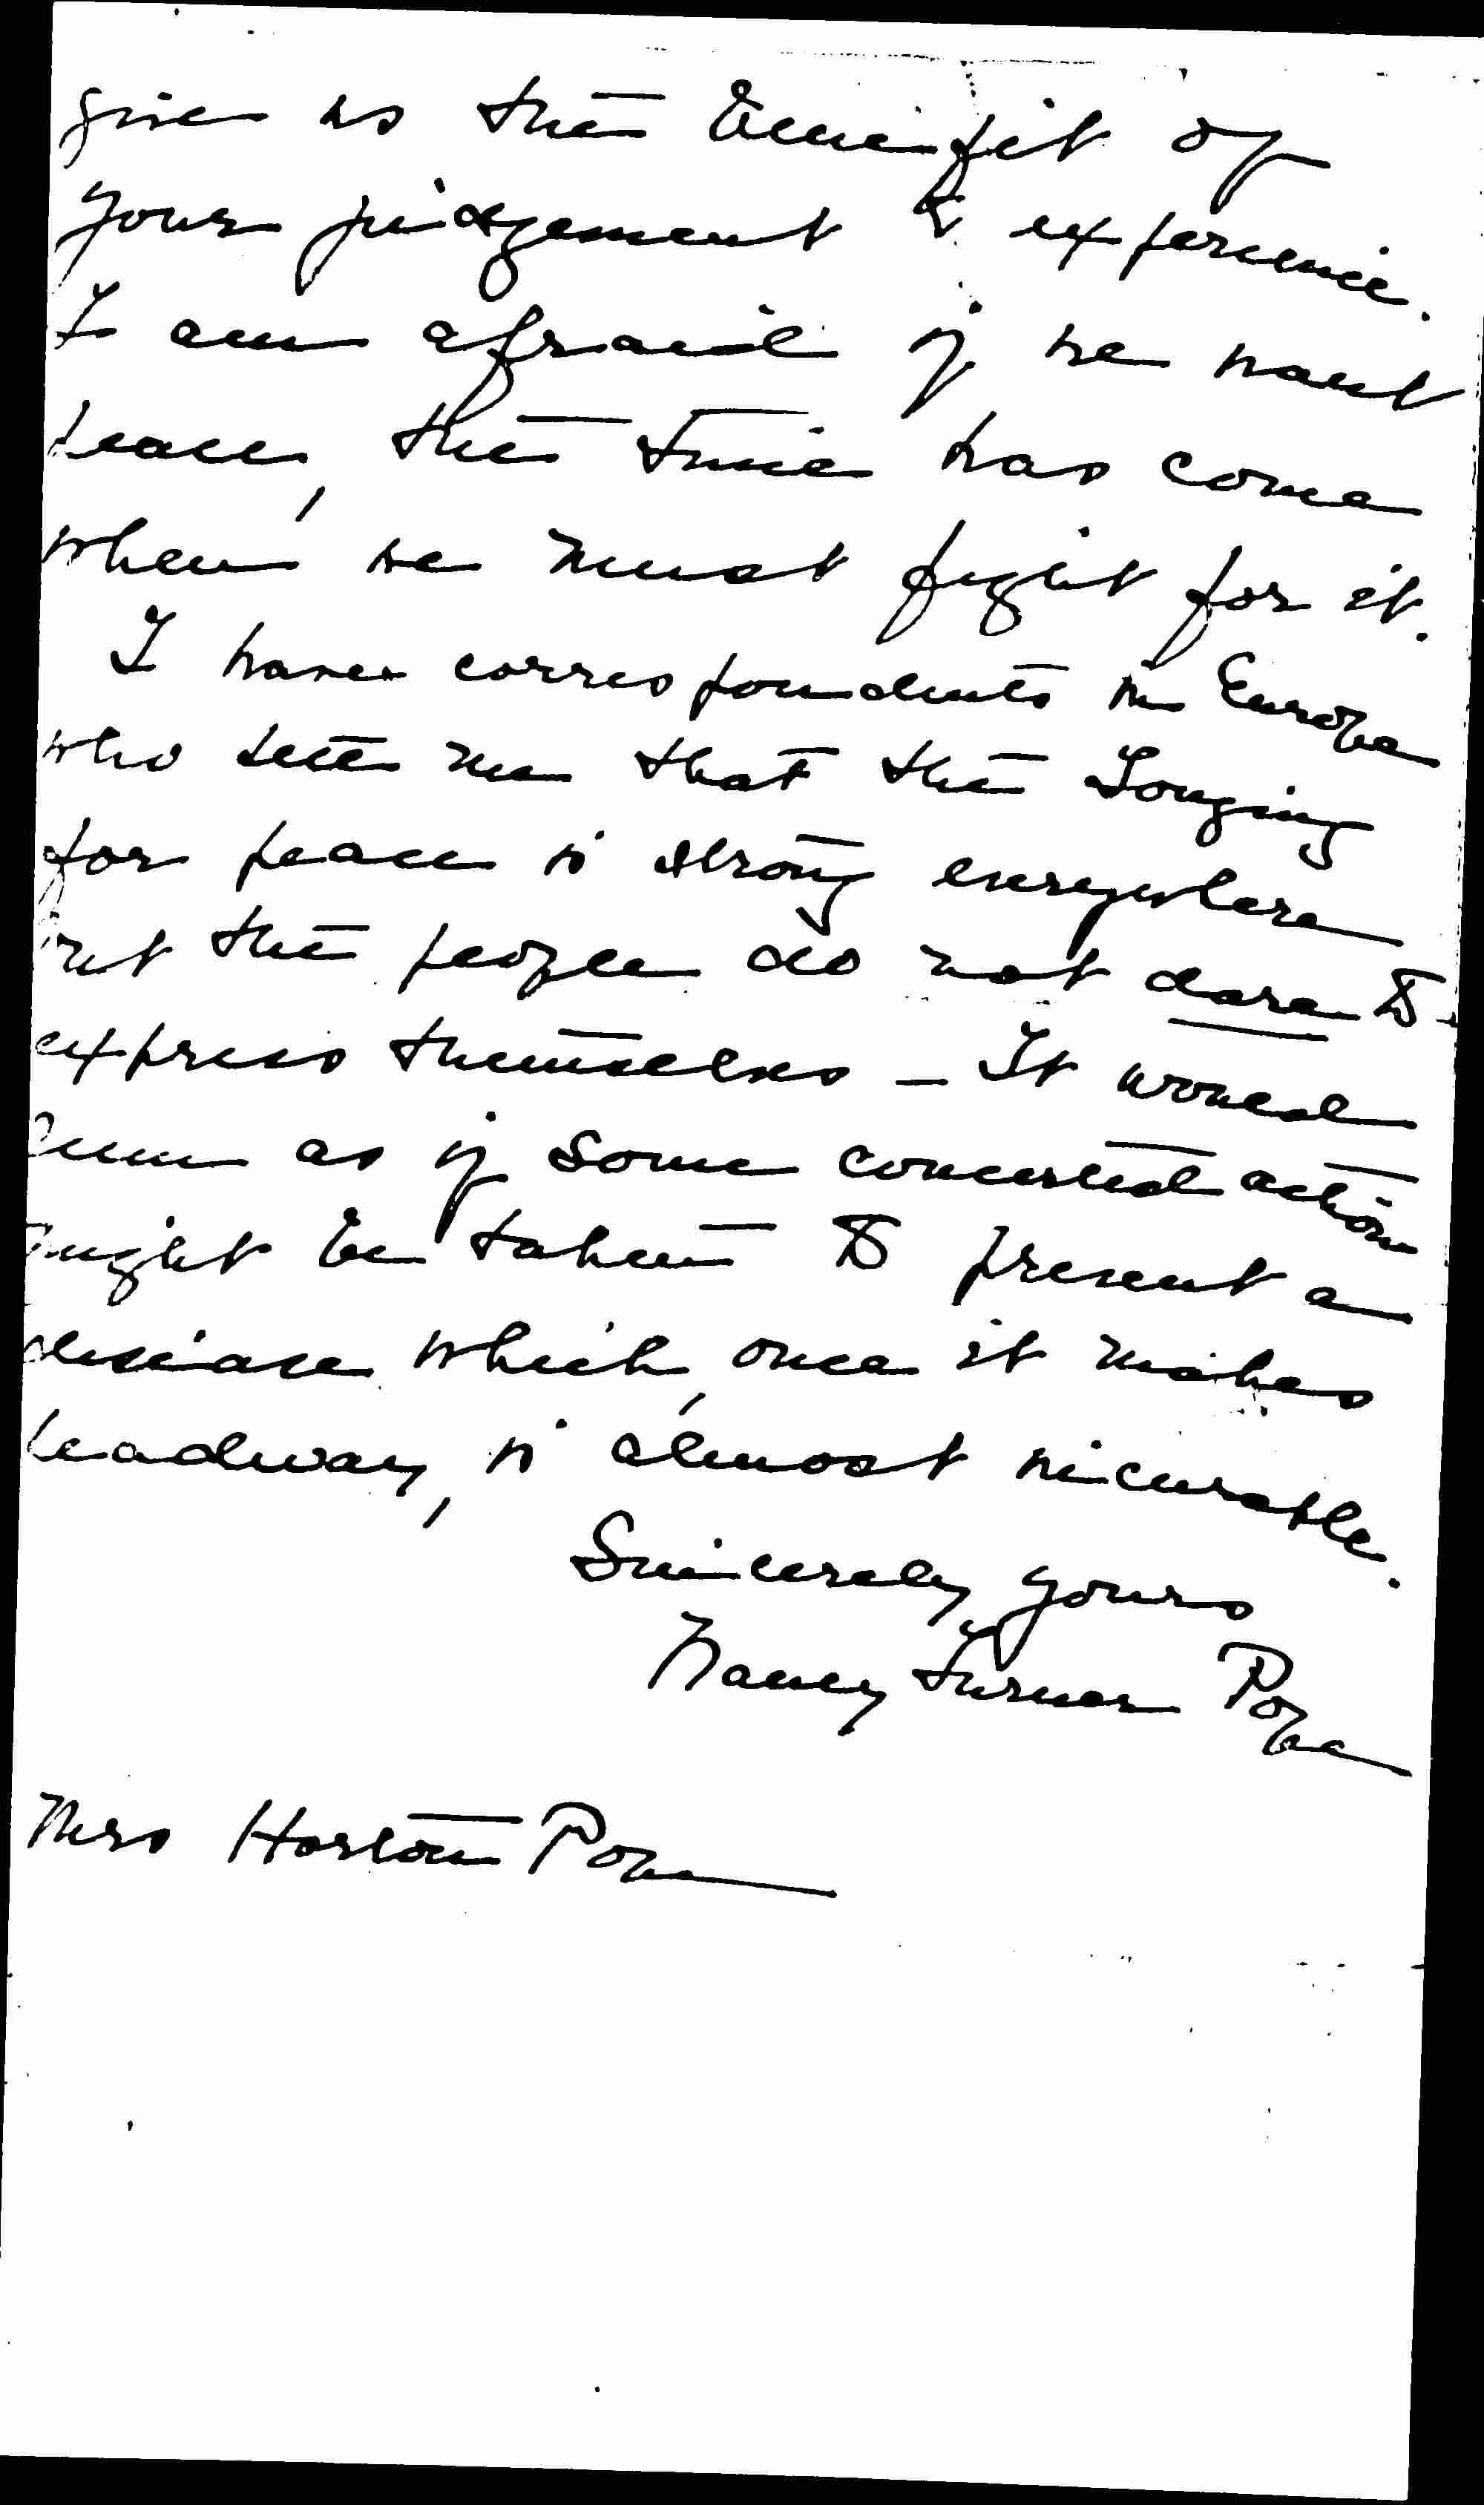 give us the benefit of
your judgement & experience.
I am afraid if we want
peace, the time has come
when we must fight for it.
I have correspondents in Europe
who tell me that the longing
for peace is strong everywhere
but the people do not dare to
express themselves – It would
seem as if some concerted action
might be taken to prevent a
disease which, once it makes
headway, is almost incurable.
Sincerely yours
Nancy Turner Pope
Mrs Horton Pope